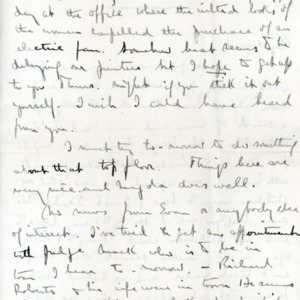 day at the office where the wilted looks of
the women impelled the purchase of an
electric fan. Somehow heat seems to be
delaying our printers but I hope to get up
to you Thurs. night if you stick it out
yourself. I wish I could have heard
from you.
I must try to-morrow to do something
about that top floor. Things here are
very nice and Magda does well.
No news from or anybody else
of interest. I've tried to get an appointment
with Judge Mack who is to be in
town I hear to-morrow. – Richard
Roberts & his wife were in town He seems